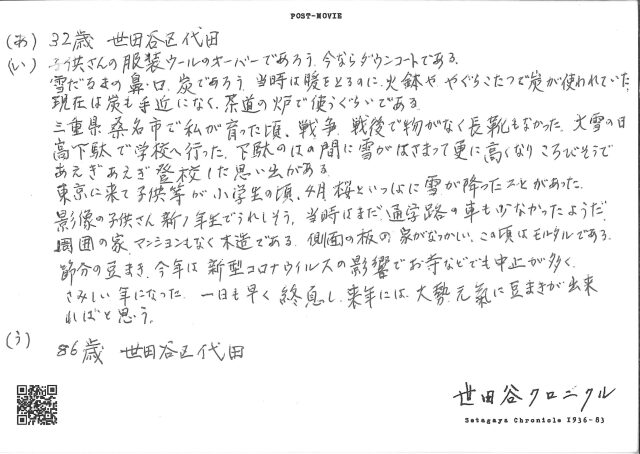 POST-MOVIE
(あ) 32歳 世田谷区代田
(い) 子供さんの服装ウールのオーバーであろう 今ならダウンコートである.
雪だるまの鼻・口. 炭であろう 当時は暖をとるのに火鉢や やぐらこたつで炭が使われていた
現在は炭も手近になく. 茶道の炉で使うぐらいである
三重県 桑名市で私が育った頃、戦争. 戦後で物がなく長靴もなかった. 大雪の日
高下駄で学校へ行った. 下駄のはの間に雪がはさまって更に高くなりころびそうで
あえぎあえぎ登校した思い出がある.
東京に来て子供等が小学生の頃、4月桜といっしょに雪が降ったことがあった.
影像の子供さん 新1年生でうれしそう. 当時はまだ通学路の車も少なかったようだ.
周囲の家. マンションもなく木造である. 側面の板の家がなつかしい. この頃はモルタルである.
節分の豆まき. 今年は新型コロナウイルスの影響でお寺などでも中止が多く.
さみしい年になった. 一日も早く終息し. 来年には大勢. 元氣に豆まきが出来
ればと思う.
(う) 86歳 世田谷区代田
世田谷クロニクル
Setagaya Chronicle 1936-83